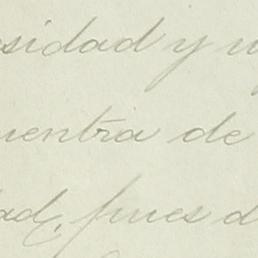 sidad y
uentra de
dad, pues d